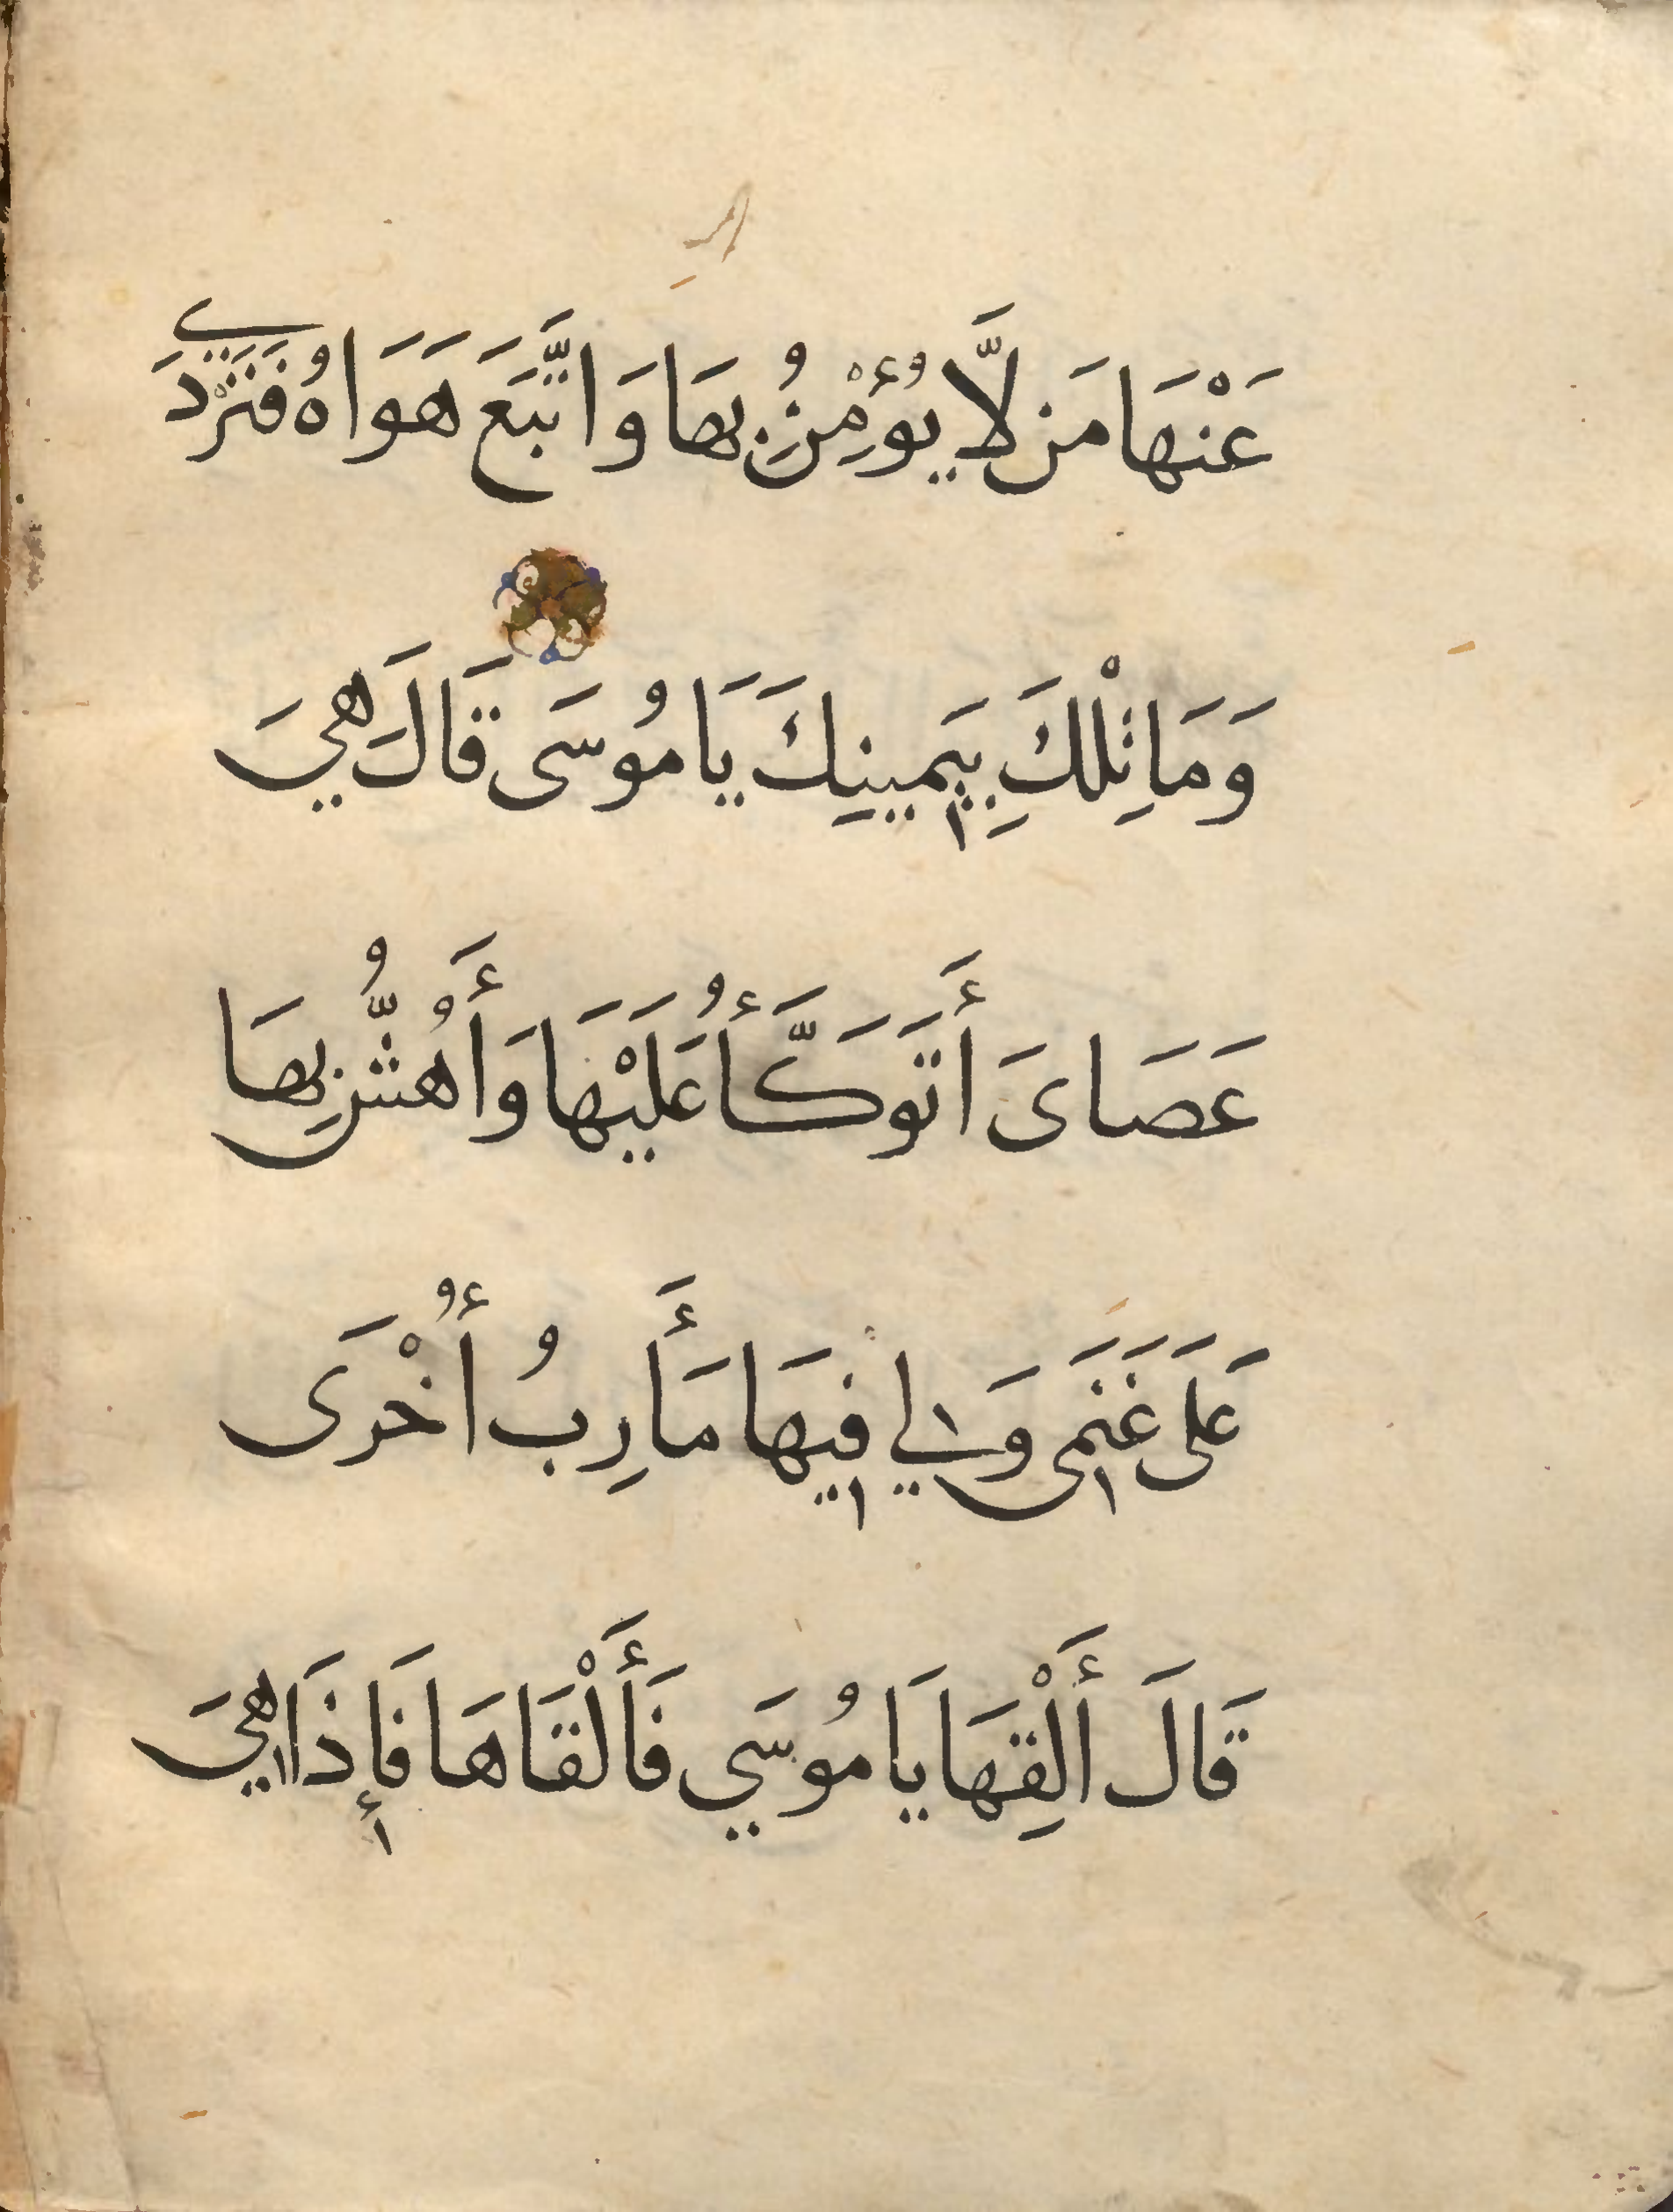 عَنْهَا مَن لَّا يُؤْمِنُ بِهَا وَاتَّبَعَ هَوَاهُ فَتَرْدَي
وَمَا تِلْكَ بِيَمِينِكَ يَا مُوسَى قَالَ هِيَ
عَصَاىَ أَتَوَكَّأُ عَلَيْهَا وَأَهُشُّ بِهَا
عَلَى غَنَمِى وَلِي فِيهَا مَأَرِبُ أُخْرَى
قَالَ أَلْقِهَا يَا مُوسَي فَأَلْقَاهَا فَإِذَا هِيَ